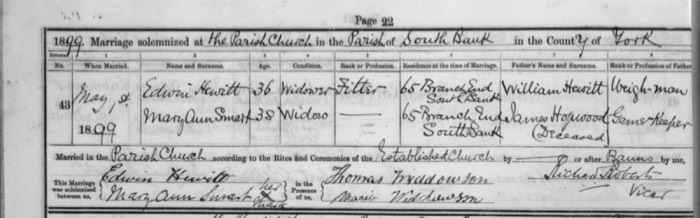 Page 22
1899. Marriage solemnized at the Parish Church in the Parish of South Bank in the County of York
No. When Married. Name and Surname. Age. Condition. Rank or Profession. Residence at the time of Marriage. Father's Name and Surname. Rank or Profession of Father
43 May 1st. 1899 Edwin Hewitt 36 Widower Fitter 65 Branch End South Bank William Hewitt Weigh-man
Mary Ann Smart 38 Widow — 65 Branch End South Bank James Hopwood (Deceased) Game Keeper
Married in the Parish Church according to the Rites and Ceremonies of the Established Church by — or after Banns by me,
This Marriage was solemnized between us, Edwin Hewitt in the Presence of us, Thomas Widdowson Richard Roberts
Mary Ann Smart her X mark Marie Widdowson Vicar